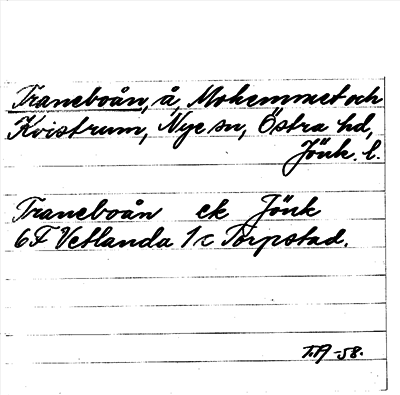 Traneboån, å, Mohemmet och
Kvistrum, Nye sn, Östra hd,
Jönk. l.
Traneboån ek Jönk
6F Vetlanda 1c Torpstad.
T.A -58.